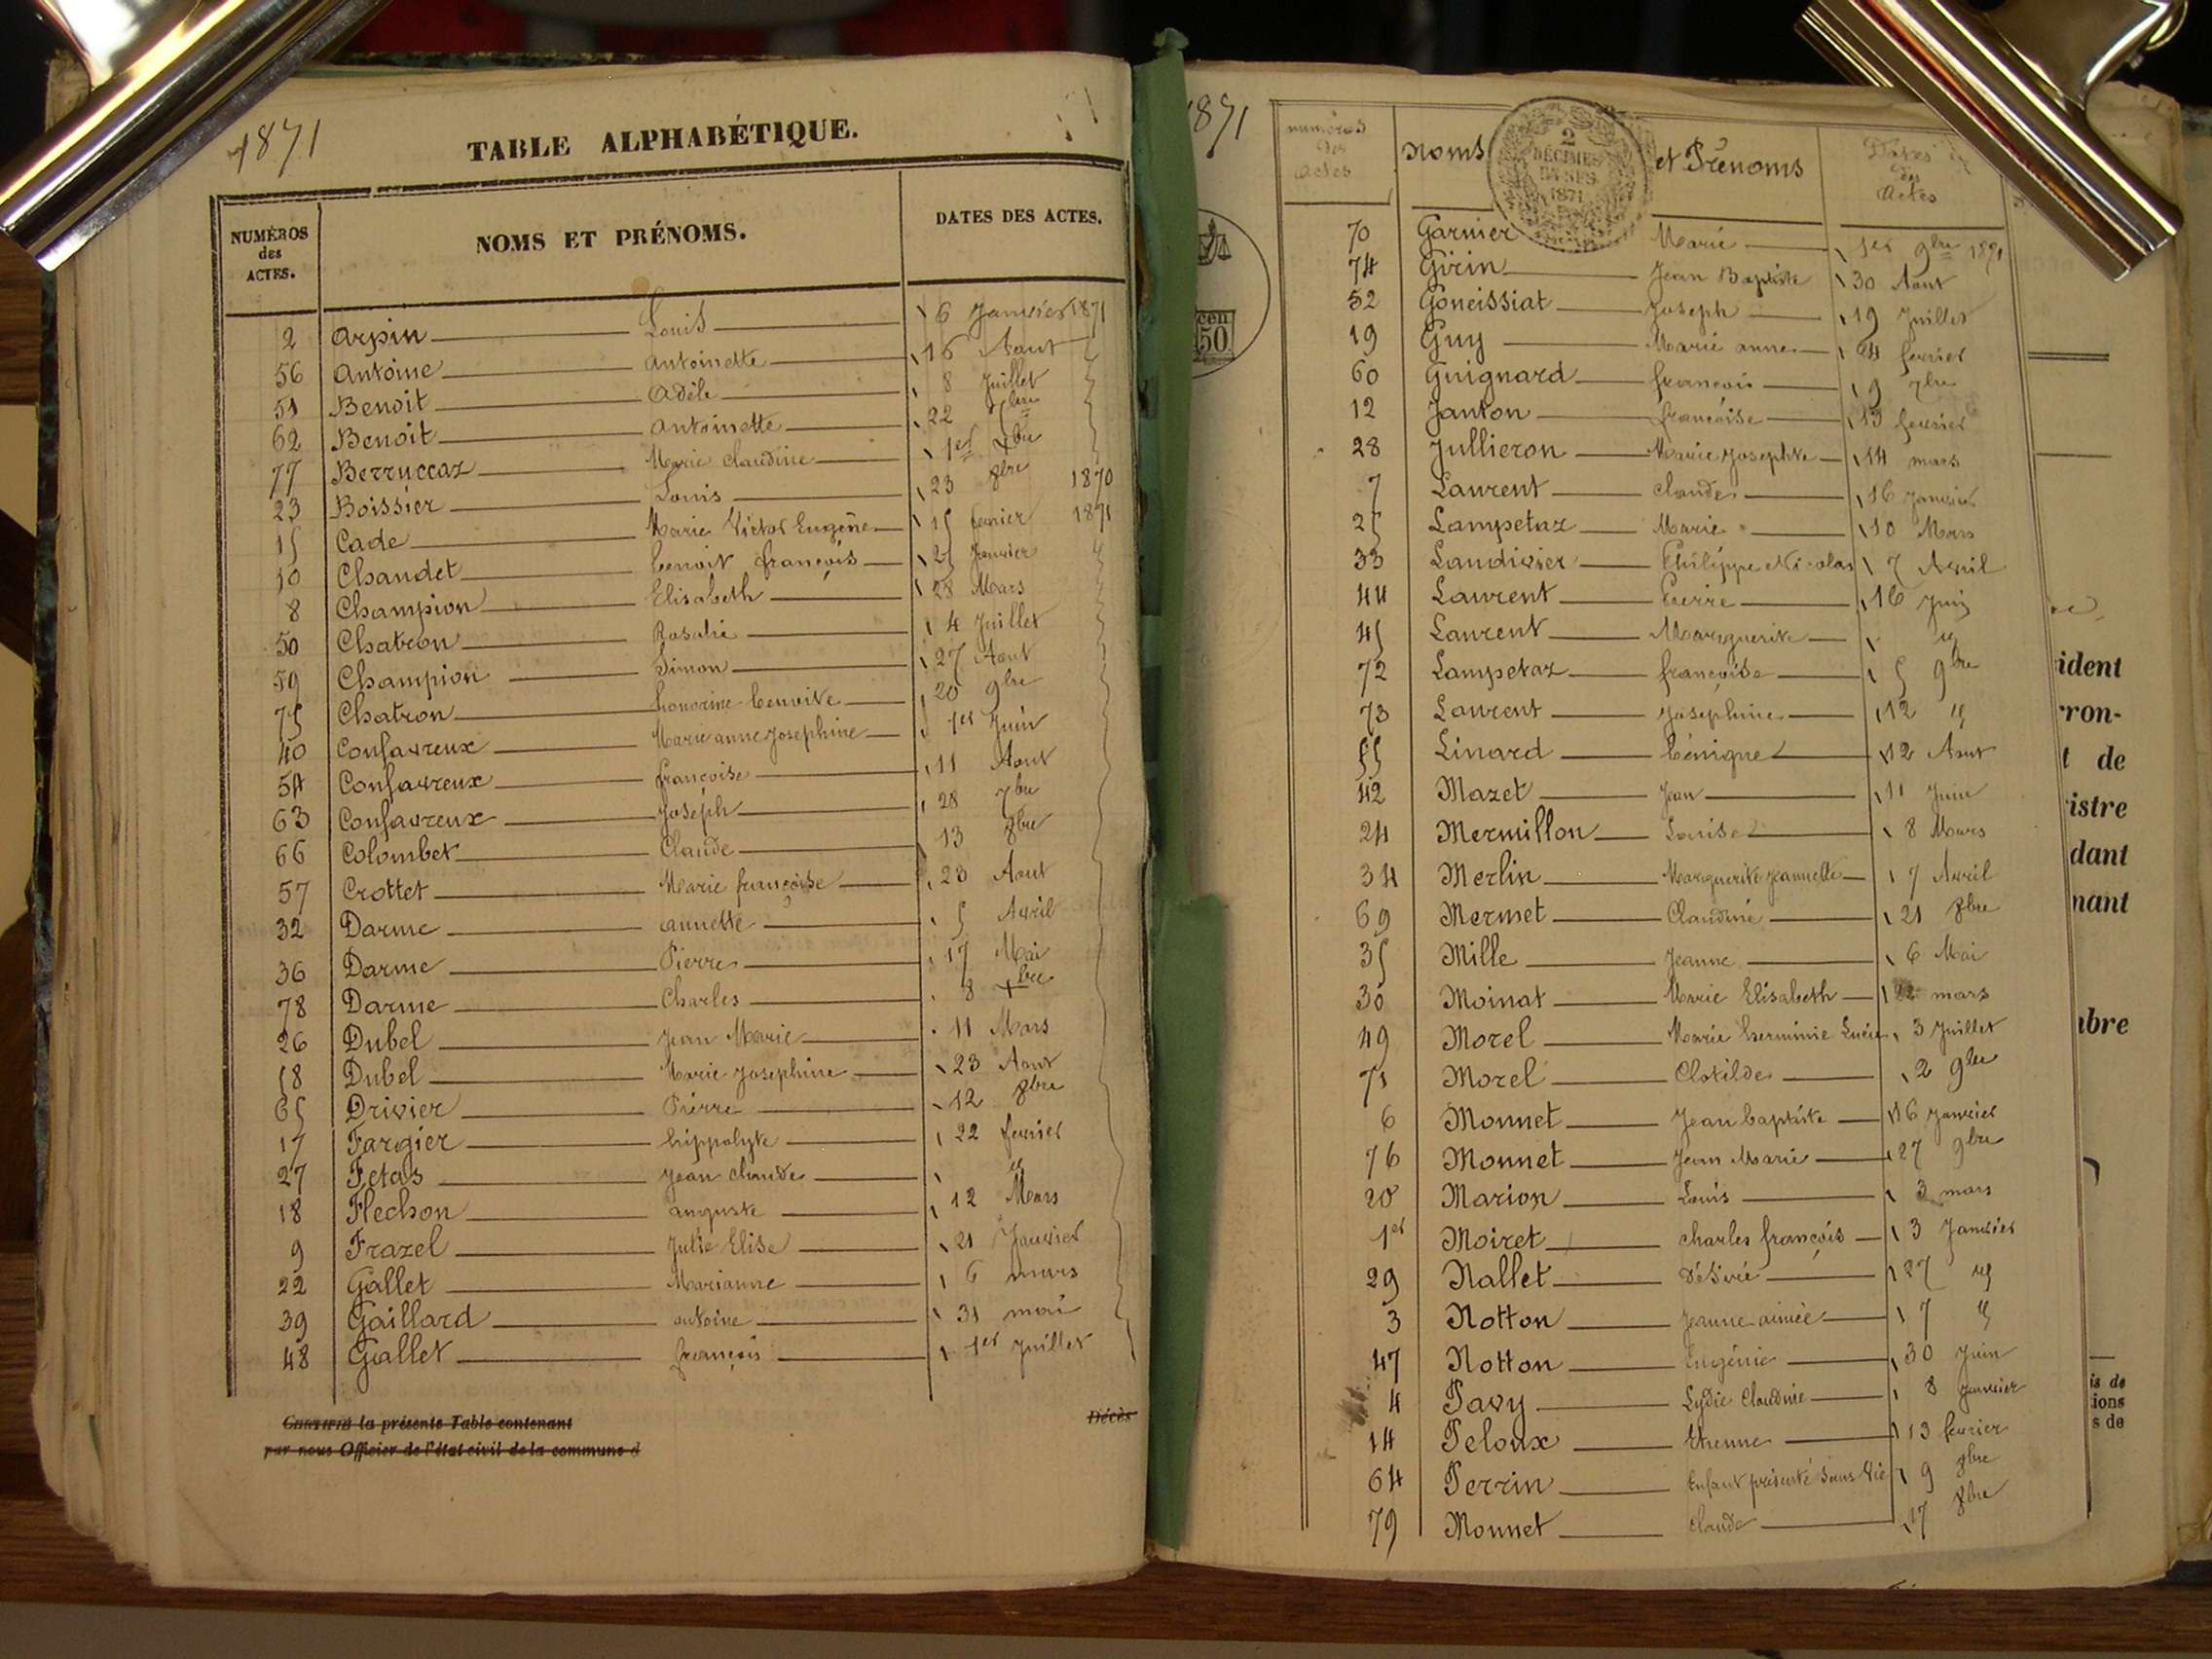 1871
TABLE ALPHABÉTIQUE.
NUMÉROS des ACTES. NOMS ET PRÉNOMS. DATES DES ACTES.
2 Arpin Louis 6 Janvier 1871
56 Antoine Antoinette 16 Aout
51 Benoit Adèle 8 Juillet
62 Benoit Antoinette 22 7bre
77 Berruccaz Marie Claudine 1er Xbre
23 Boissier Louis 23 8bre 1870
15 Cade Marie Victor Eugène 15 fevrier 1871
10 Chaudet benoit françois 25 Janvier
8 Champion Elisabeth 28 Mars
50 Chatron Rosalie 4 Juillet
59 Champion Simon 27 Aout
75 Chatron honorine benoite 20 9bre
40 Confavreux Marie anne Josephine 1er Juin
54 Confavreux françoise 11 Aout
63 Confavreux Joséph 28 7bre
66 Colombet Claude 13 8bre
57 Crottet Marie françoise 23 Aout
32 Darme annette 5 Avril
36 Darme Pierre 17 Mai
78 Darme Charles 8 Xbre
26 Dubel Jean Marie 11 Mars
58 Dubel Marie Josephine 23 Aout
65 Drivier Pierre 12 8bre
17 Fargier hippolyte 22 fevrier
27 Fetas Jean Claude "
18 Flechon auguste 12 Mars
9 Frazel Julie Elise 21 Janvier
22 Gallet Marianne 6 mars
39 Gaillard antoine 31 mai
48 Gallet françois 1er Juillet
CERTIFIÉ la présente Table contenant Décès
par nous Officier de l'état civil de la commune d
1871
numéros des actes Noms et Prénoms Dates des Actes
2 DÉCIMES EN SUS 1871
cen 50
70 Garnier Marie 1er 9bre 1871
74 Girin Jean Baptiste 30 Aout
52 Goneissiat Joseph 19 Juillet
19 Guy Marie anne 24 fevrier
60 Guignard françois 9 7bre
12 Janton françoise 13 fevrier
28 Jullieron Marie Josephte 14 mars
7 Laurent Claude 16 Janvier
25 Lampetaz Marie 10 Mars
33 Laudivier Philippe Nicolas 7 Avril
44 Laurent Pierre 16 Juin
45 Laurent Marguerite "
72 Lampetaz françoise 5 9bre
73 Laurent Josephine 12 "
55 Linard bénigne 12 Aout
42 Mazet Jean 11 Juin
24 Mermillon Louise 8 Mars
34 Merlin Marguerite Jeannette 7 Avril
69 Mermet Claudine 21 8bre
35 Mille Jeanne 6 Mai
30 Moinat Marie Elisabeth 22 mars
49 Morel Marie herminie Lucie 3 Juillet
71 Morel Clotilde 2 9bre
6 Monnet Jean baptiste 16 Janvier
76 Monnet Jean Marie 27 9bre
20 Marion Louis 3 mars
1er Moiret charles françois 3 Janvier
29 Nallet Désiré 27 "
3 Notton Jeanne aimée 7 "
47 Notton Eugénie 30 Juin
4 Pavy Lydie Claudine 8 Janvier
14 Peloux Etienne 13 fevrier
64 Perrin Enfant présenté sans vie 9 8bre
79 Monnet Claude 17 8bre
ident
ron-
t de
istre
dant
nant
bre
is de
ions
s de